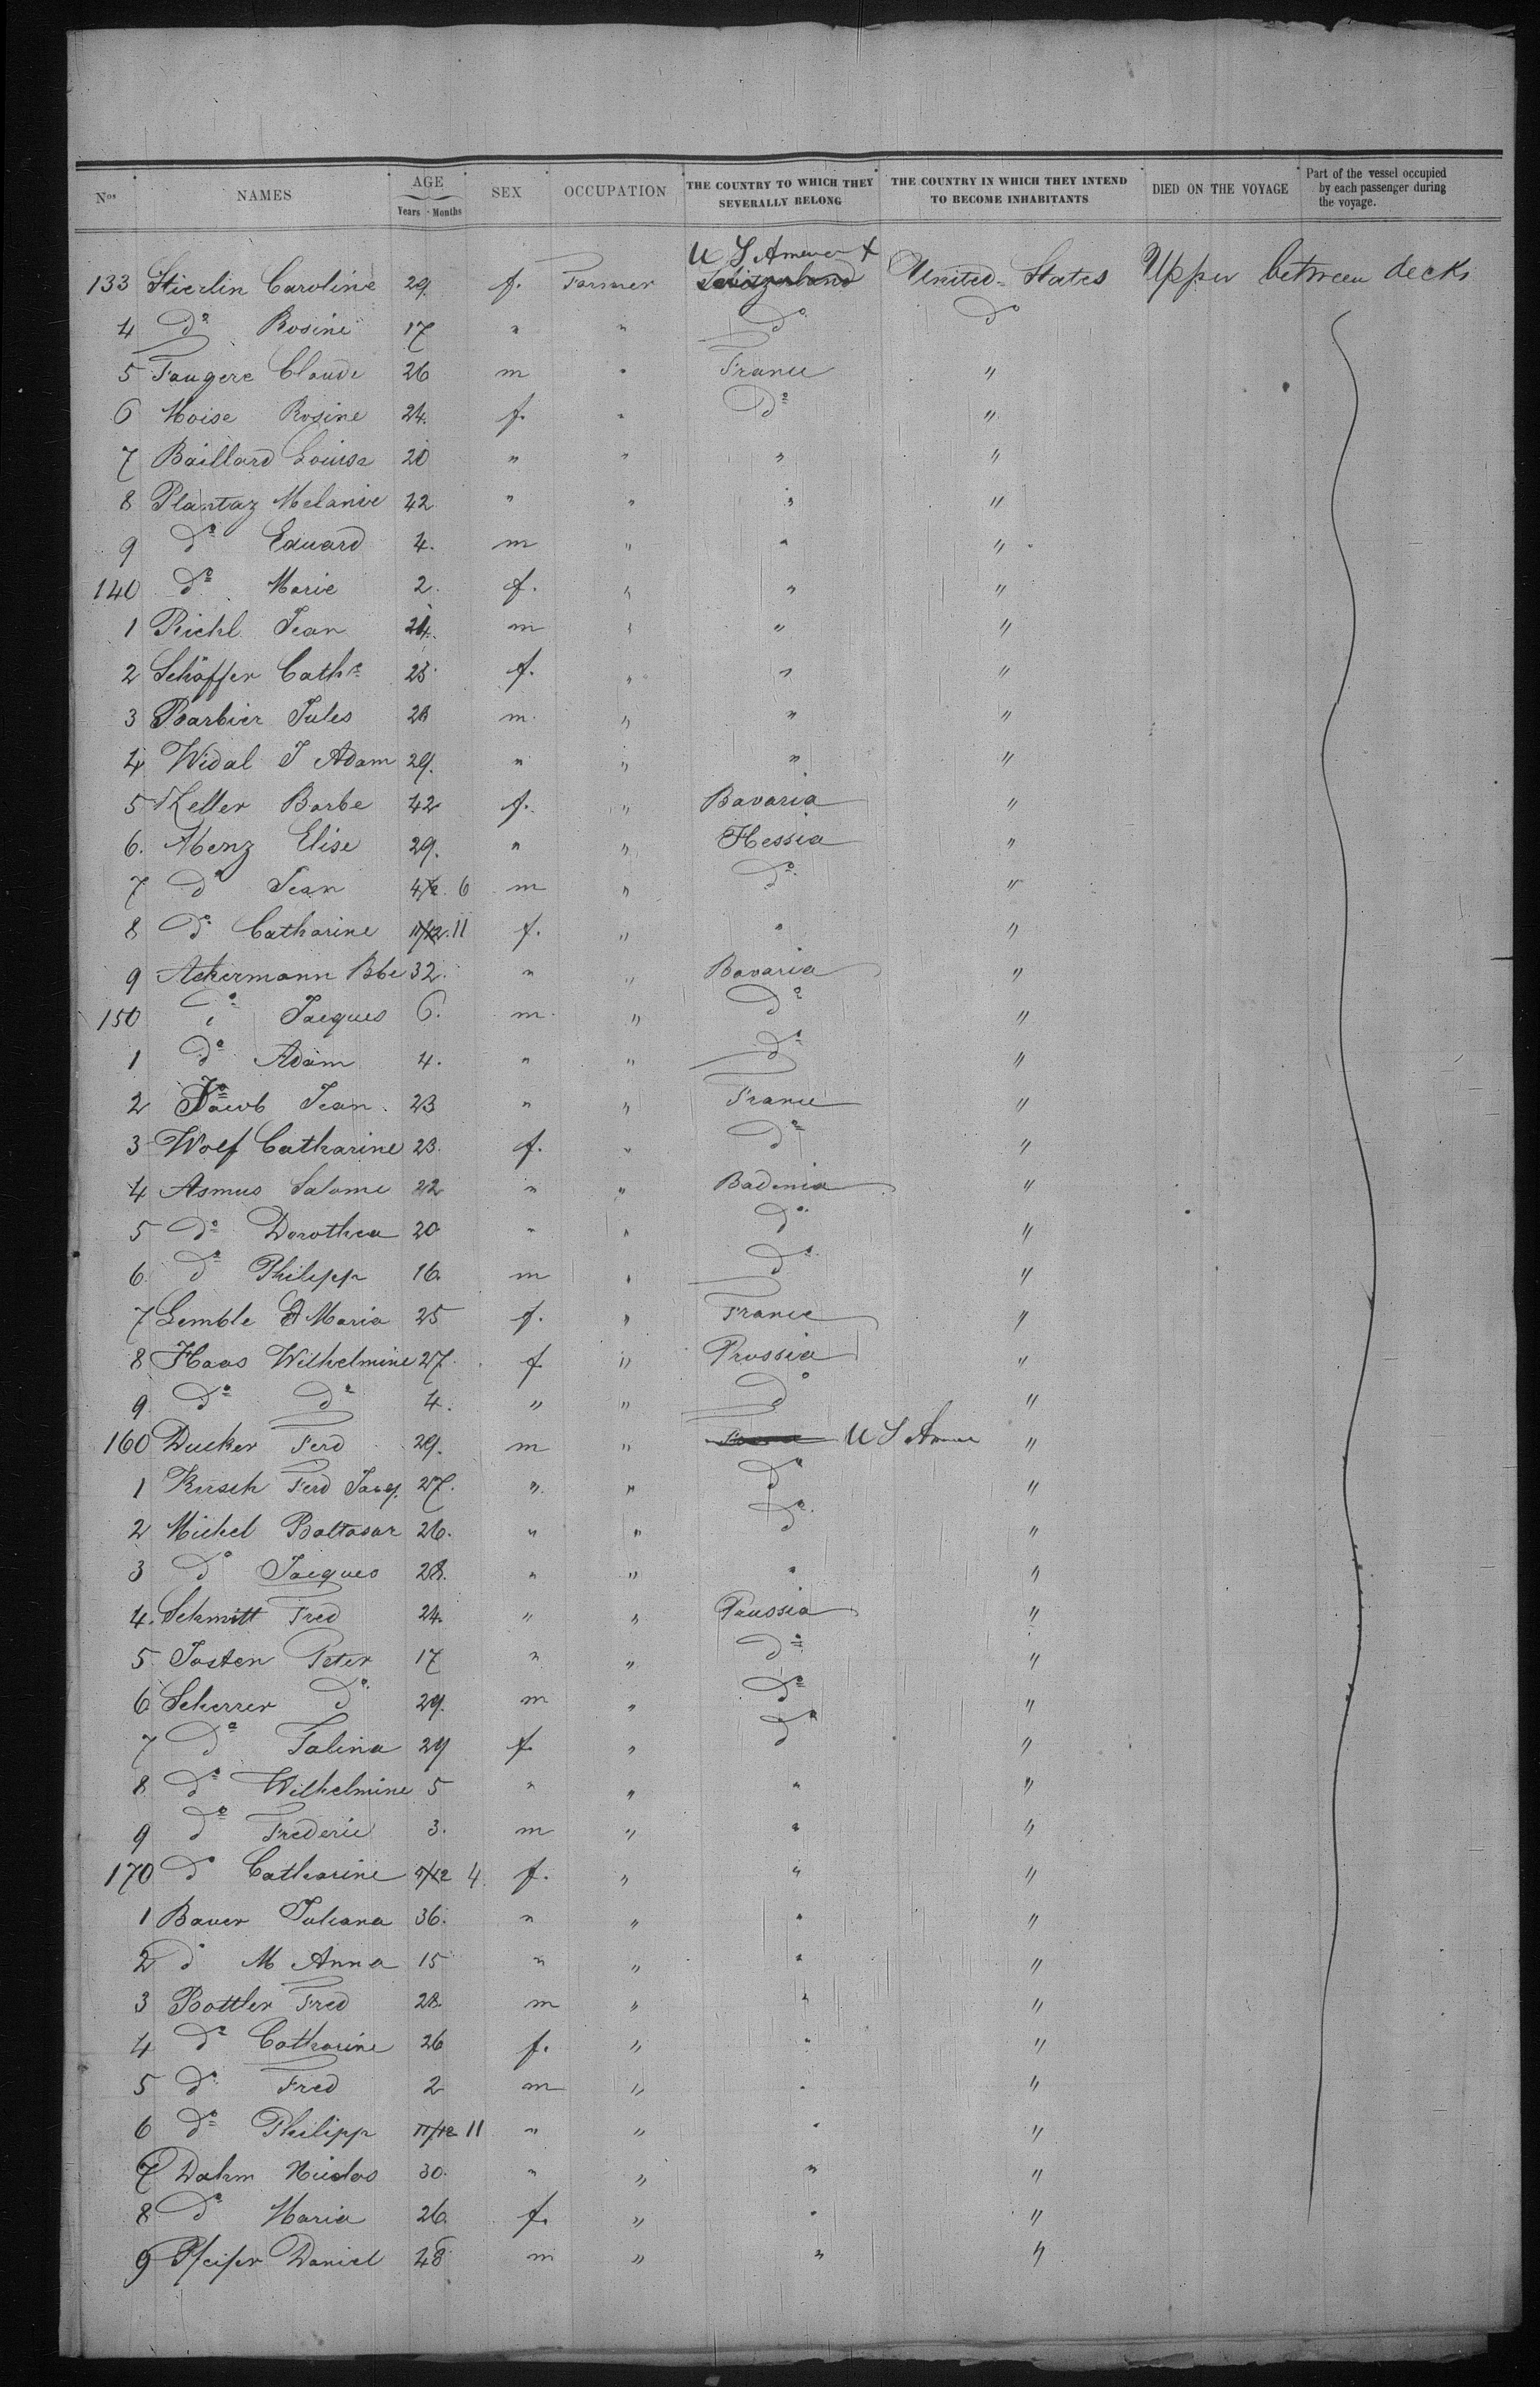 Nos NAMES AGE Years Months SEX OCCUPATION THE COUNTRY TO WHICH THEY SEVERALLY BELONG THE COUNTRY IN WHICH THEY INTEND TO BECOME INHABITANTS DIED ON THE VOYAGE Part of the vessel occupied by each passenger during the voyage.
U S Americ +
133 Stierlin Caroline 29. f. Farmer Switzerland United-States Upper between decks
4 do Rosine 17 " " do do
5 Faugere Claude 26 m " France "
6 Moise Rosine 24. f. " do "
7 Baillard Louise 20 " " " "
8 Plantaz Melanie 42 " " " "
9 do Eduard 4. m " " "
140 do Marie 2. f. " " "
1 Riehl Jean 24. m " " "
2 Schäffer Cathe 23. f. " " "
3 Barbier Jules 28 m. " " "
4 Widal J Adam 29. " " " "
5 Keller Barbe 42 f. " Bavaria "
6. Menz Elise 29. " " Hessia "
7 do Jean 4 6 m " do "
8 do Catharine 11/12. 11 f. " " "
9 Ackermann Bbe 32. " " Bavaria "
150 do Jacques 6. m. " do "
1 do Adam 4. " " do "
2 Jacob Jean. 23 " " France "
3 Wolf Catharine 23. f. " do "
4 Asmus Salome 22 " " Badenia "
5 do Dorothea 20 " " do "
6 do Philipp 16. m " do "
7 Lemble Maria 25 f. " France "
8 Haas Wilhelmine 27. f " Prussia "
9 do do 4. " " do "
160 Ducker Ferd 29. m " U S Amer "
1 Kirsch Ferd Jacq. 27. " " do "
2 Michel Baltasar 26. " " do "
3 do Jacques 28. " " " "
4. Schmitt Fred 24. " " Prussia "
5 Josten Peter 17 " " do "
6 Scherrer do 29. m " do "
7 do Talina 29 f. " do "
8 do Wilhelmine 5 " " " "
9 do Frederic 3. m " " "
170 do Catharine 4 f. " " "
1 Bauer Juliana 36. " " " "
2 do M Anna 15 " " " "
3 Bottler Fred 28. m " " "
4 do Catharine 26 f. " " "
5 do Fred 2 m " " "
6 do Philipp 11/12 11 " " " "
7 Dahm Nicolas 30. " " " "
8 do Maria 26. f. " " "
9 Pfeifer Daniel 48 m " " "